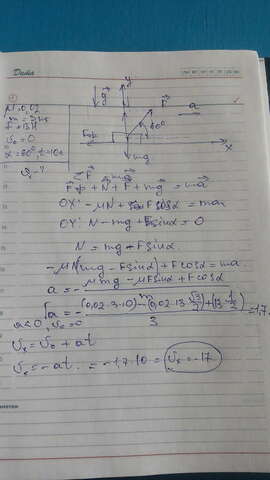 Дата
μ=0,02
F=13H
v₀=0
α=60°, t=10c
v-?
y
g
F
a
60°
Fтр
x
mg
Fтр + N + F + mg = ma
OX: -μN + Fcosα = ma
OY: N - mg + Fsinα = 0
N = mg - Fsinα.
-μ(mg - Fsinα) + Fcosα = ma.
a = - μmg - μFsinα + Fcosα
a = - (0,02·3·10) - (0,02·13·√3/2) + (13·1/2) / 3 = 1,7
a<0, v₀=0
vₓ = v₀ + at
vₓ = -at. = -1,7·10 = vₓ = -17